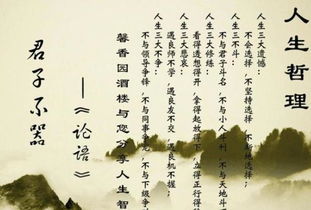 人生哲理
人生三大遗憾:
不会选择,不坚持选择,不断地选择;
人生三不斗:
不与君子斗名,不与小人斗利,不与天地斗
人生三大修练:
看得透想得开,拿得起放得下,立得正行得
人生三大悲哀:
遇良师不学,遇良友不交,遇良机不握;
人生三大不争:
不与领导争锋,不与同事争宠,不与下级争
馨香园酒楼与您分享人生智
——《论语》
君子不器